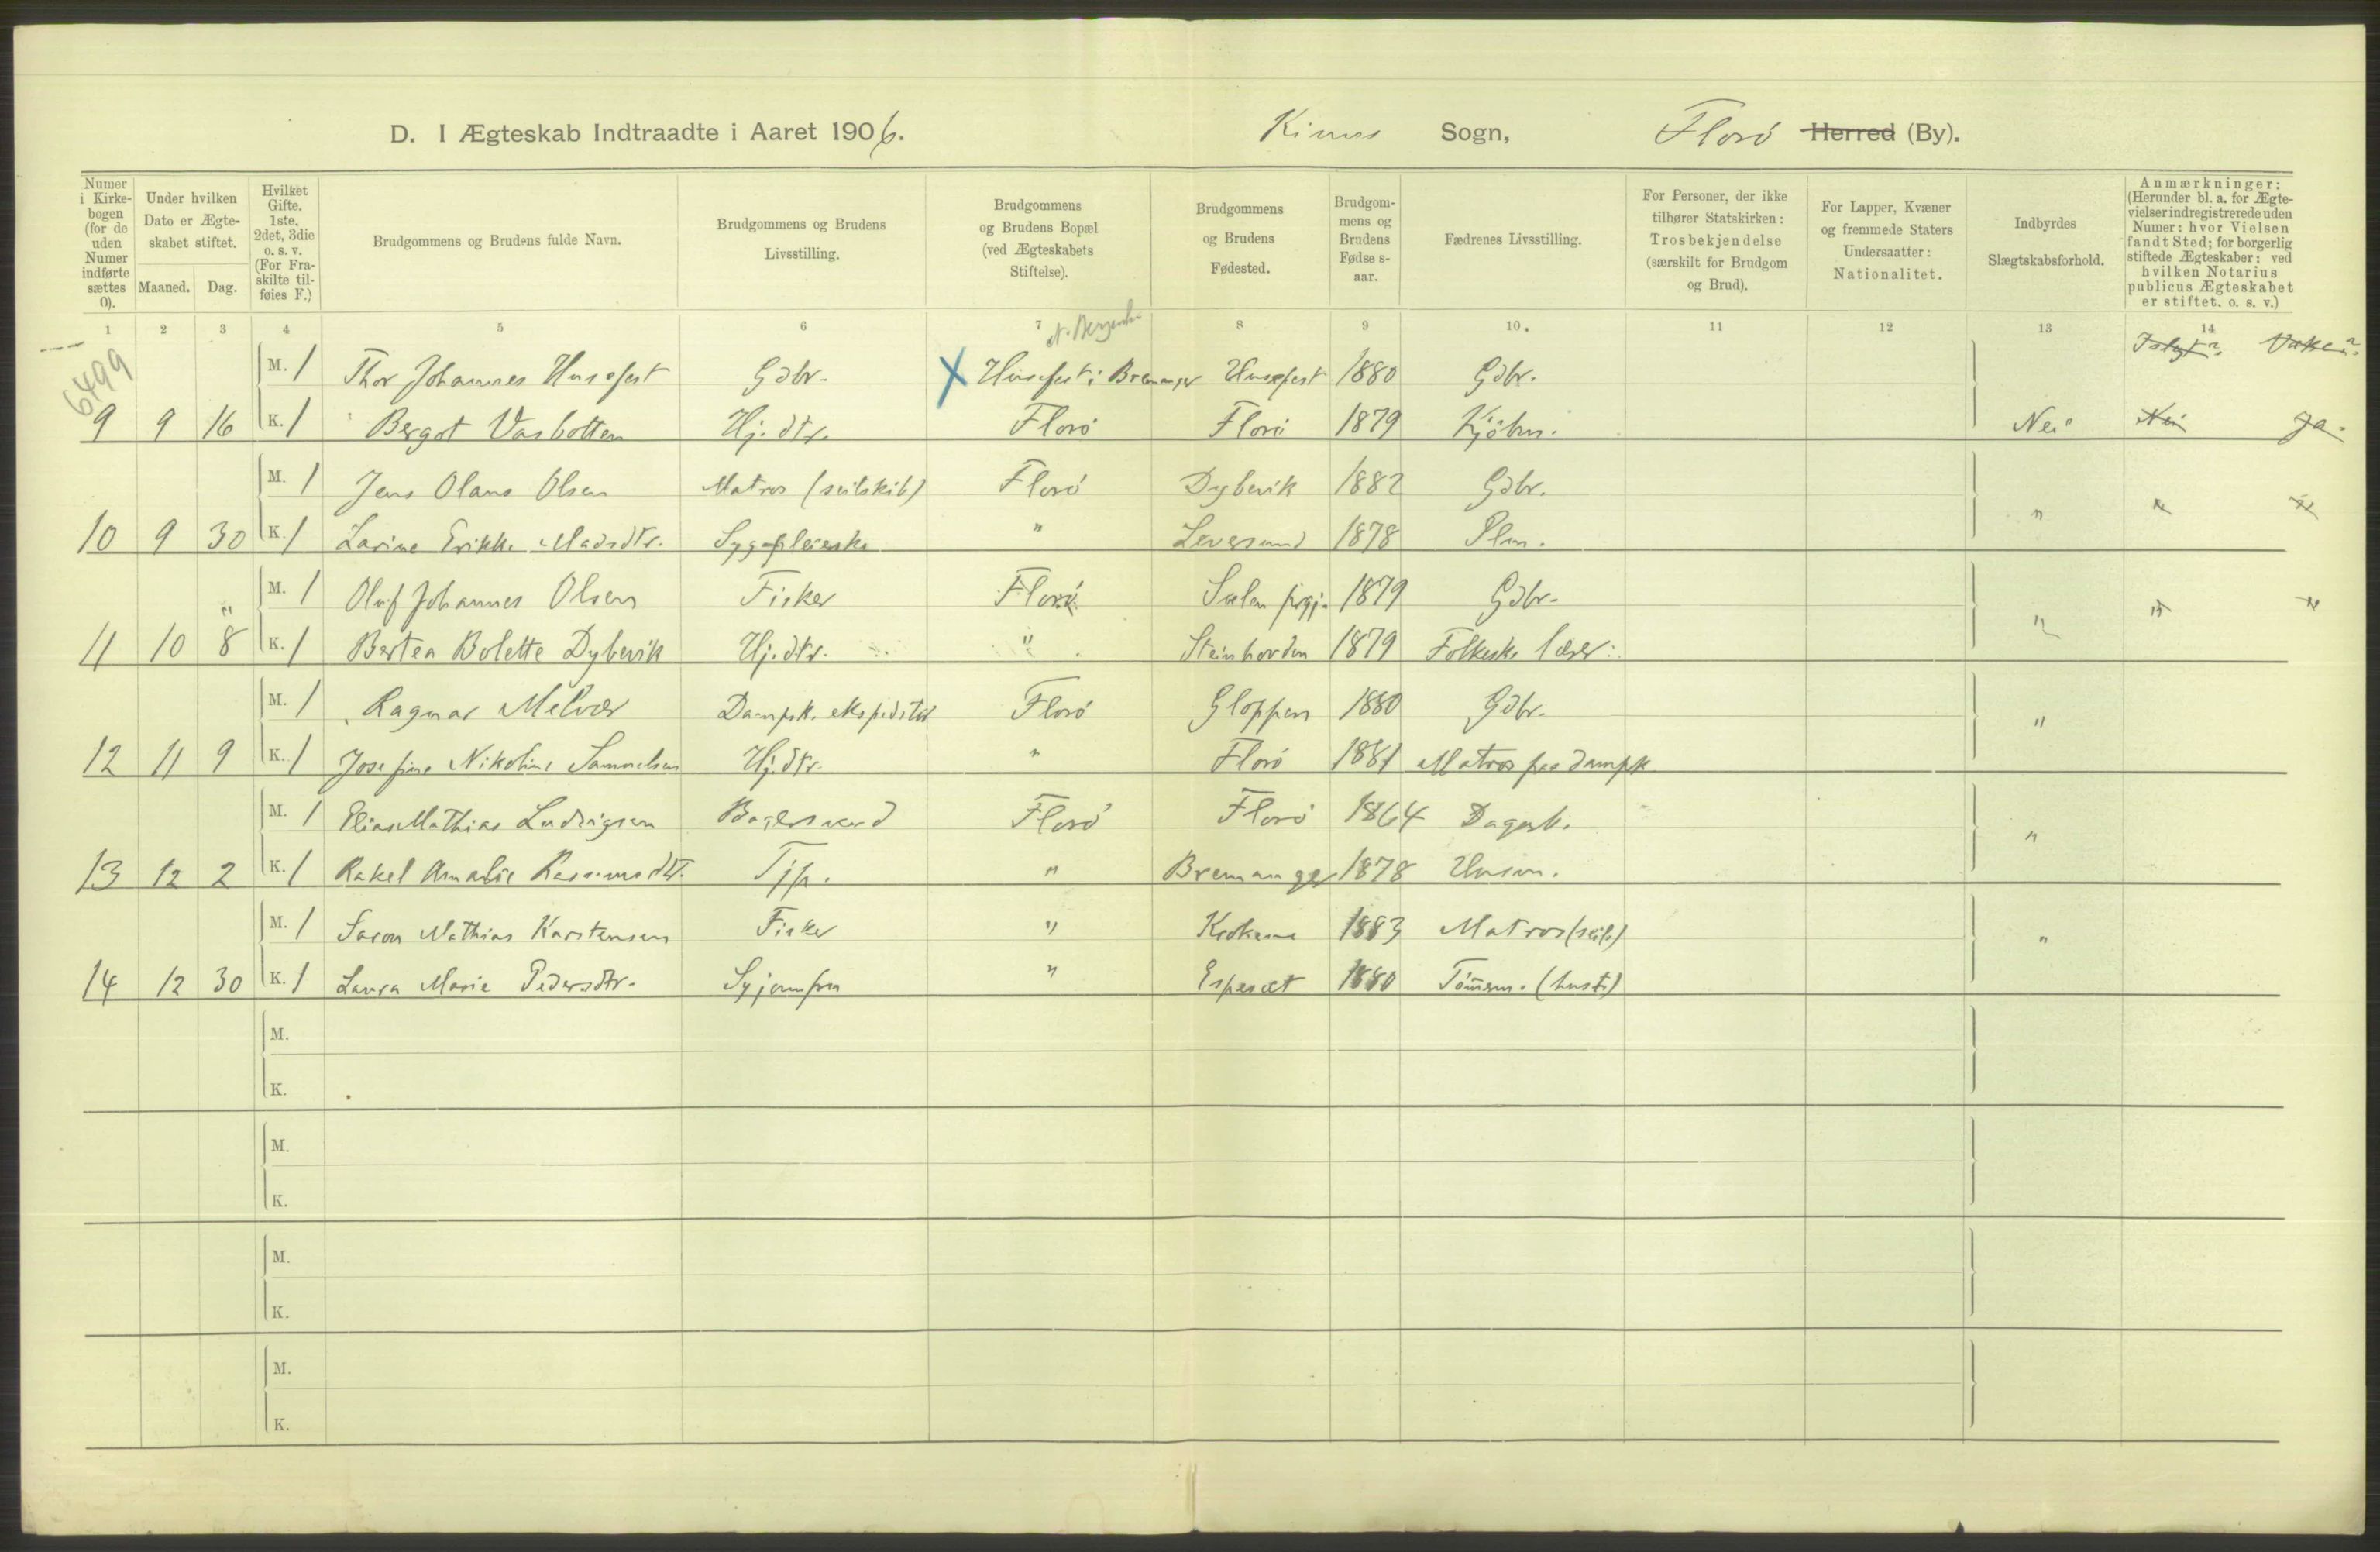 D. I Ægteskab Indtraadte i Aaret 1906. Kinns Sogn, Florø Herred (By).
Numer i Kirkebogen (for de uden Numer indførte sættes 0).
Under hvilken Dato er Ægteskabet stiftet.
Maaned. Dag.
Hvilket Gifte. 1ste. 2det, 3die o. s. v. (For Fraskilte tilføies F.)
Brudgommens og Brudens fulde Navn.
Brudgommens og Brudens Livsstilling.
Brudgommens og Brudens Bopæl (ved Ægteskabets Stiftelse).
Brudgommens og Brudens Fødested.
Brudgommens og Brudens Fødselsaar.
Fædrenes Livsstilling.
For Personer, der ikke tilhører Statskirken: Trosbekjendelse (særskilt for Brudgom og Brud).
For Lapper, Kvæner og fremmede Staters Undersaatter: Nationalitet.
Indbyrdes Slægtskabsforhold.
Anmærkninger: (Herunder bl. a. for Ægtevielser indregistrerede uden Numer: hvor Vielsen fandt Sted; for borgerlig stiftede Ægteskaber: ved hvilken Notarius publicus Ægteskabet er stiftet. o. s. v.)
1 2 3 4 5 6 7 8 9 10. 11 12 13 14
6499
M. 1 Thor Johannes Husefest Gdbr. X Husefest i Bremanger Husefest 1880 Gdbr.
9 9 16 K. 1 Bergot Vasbotten Hj. dtr. Florø Florø 1879 Kjøbm. Nei Nei Ja.
M. 1 Jens Olaus Olsen Matros (seilskib) Florø Dybevik 1882 Gdbr.
10 9 30 K. 1 Larine Erikke Madsdtr. Sygepleierske " Leversund 1878 Plm. " " "
M. 1 Oluf Johannes Olsen Fisker Florø Sulen prgj. 1879 Gdbr.
11 10 8 K. 1 Bertea Bolette Dybevik Hj. dtr. " Steinhovden 1879 Folkesk. lærer. " " "
M. 1 Ragnar Melvær Dampsk. ekspeditør Florø Gloppen 1880 Gdbr.
12 11 9 K. 1 Josefine Nikoline Samuelsen Hj. dtr. " Florø 1881 Matros paa dampsk "
M. 1 Elias Mathias Ludvigsen Bagersvend Florø Florø 1864 Dagarb.
13 12 2 K. 1 Rakel Amalie Rasmusdtr. Tjp. " Bremanger 1878 Husm. "
M. 1 Mathias Karstensen Fisker " 1883 Matros (seils)
14 12 30 K. 1 Laura Marie Pedersdtr. Syjomfru " Espeset 1880 Tømmerm. (hust.) "
M.
K.
M.
K.
M.
K.
M.
K.